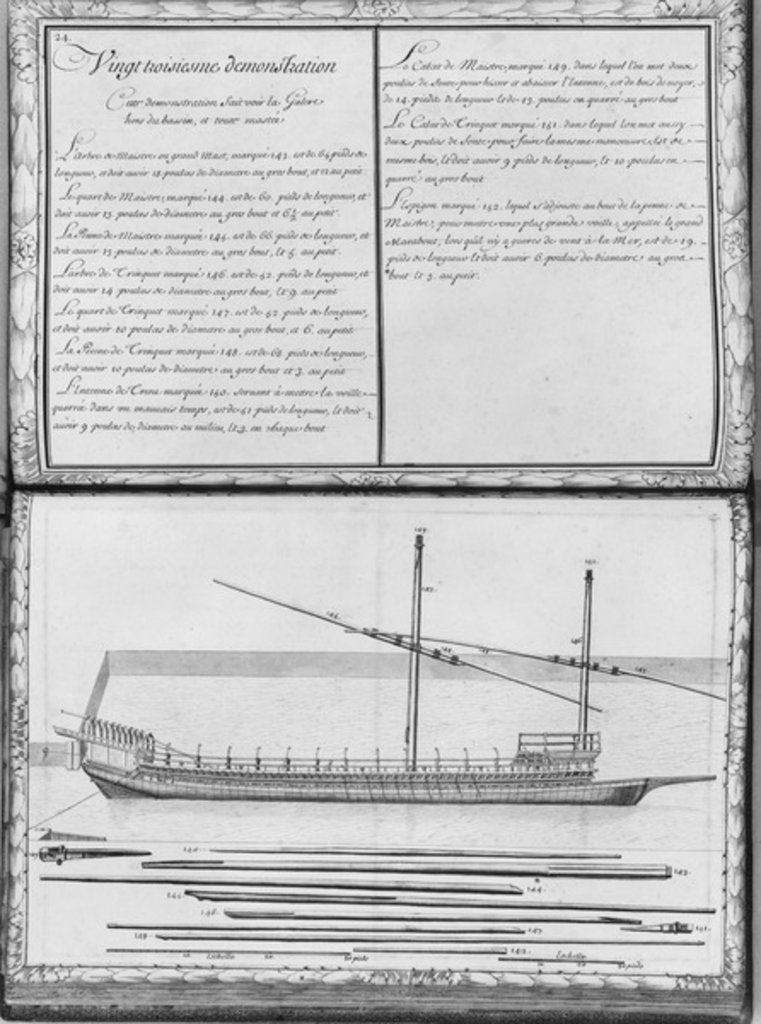 24.
Vingt troisiesme demonstration
Cette demonstration fait voir la Galere
hors du bassin, et toute mastée
L'arbre de Maistre ou grand Mast, marqué 143. est de 64 pieds de
longueur, et doit avoir 18 poulas de diametre au gros bout, et 12 au petit.
Le quart de Maistre, marqué 144. est de 60. pieds de longueur, et
doit avoir 13 poulas de diametre au gros bout et 6½ au petit.
La Penne de Maistre marquée 145. est de 66. pieds de longueur, et
doit avoir 13 poulas de diametre au gros bout, et 5. au petit.
L'arbre de Trinquet marqué 146. est de 52. pieds de longueur, et
doit avoir 14 poulas de diametre au gros bout, et 9. au petit
Le quart de Trinquet marqué 147. est de 52 pieds de longueur,
et doit avoir 10 poulas de diametre au gros bout, et 6. au petit
La Penne de Trinquet marqué 148. est de 68. pieds de longueur,
et doit avoir 10 poulas de diametre au gros bout et 3. au petit
L'antenne de Treou marquée 150. servant à mettre la voille
quarrée dans un mauvais temps, est de 51 pieds de longueur, et doit
avoir 9 poulas de diametre au milieu, et 3. en chaque bout
Le Calcet de Maistre, marqué 149. dans lequel l'on met deux
poulies de fonte pour hisser et abaisser l'antenne, est de bois de noyer,
de 14. pieds de longueur et de 13. poulas en quarré au gros bout
Le Calcet de Trinquet marqué 151. dans lequel l'on met aussy
deux poulies de fonte pour faire la mesme manoeuvre, est de
mesme bois, et doit avoir 9 pieds de longueur, et 10 poulas en
quarré au gros bout
L'espigon marqué 152. lequel s'adjouste au bout de la penne de
Maistre, pour mettre une plus grande voille, appellée le grand
Marabout, lors qu'il n'y a gueres de vent à la Mer, est de 19.
pieds de longueur et doit avoir 6 poulas de diametre au gros
bout et 3. au petit.
149.
151.
143.
145.
146.
144
148
147.
149
150.
143.
144.
145.
146.
151.
147
148.
152.
Eschelle
20.
30 pieds
Eschelle